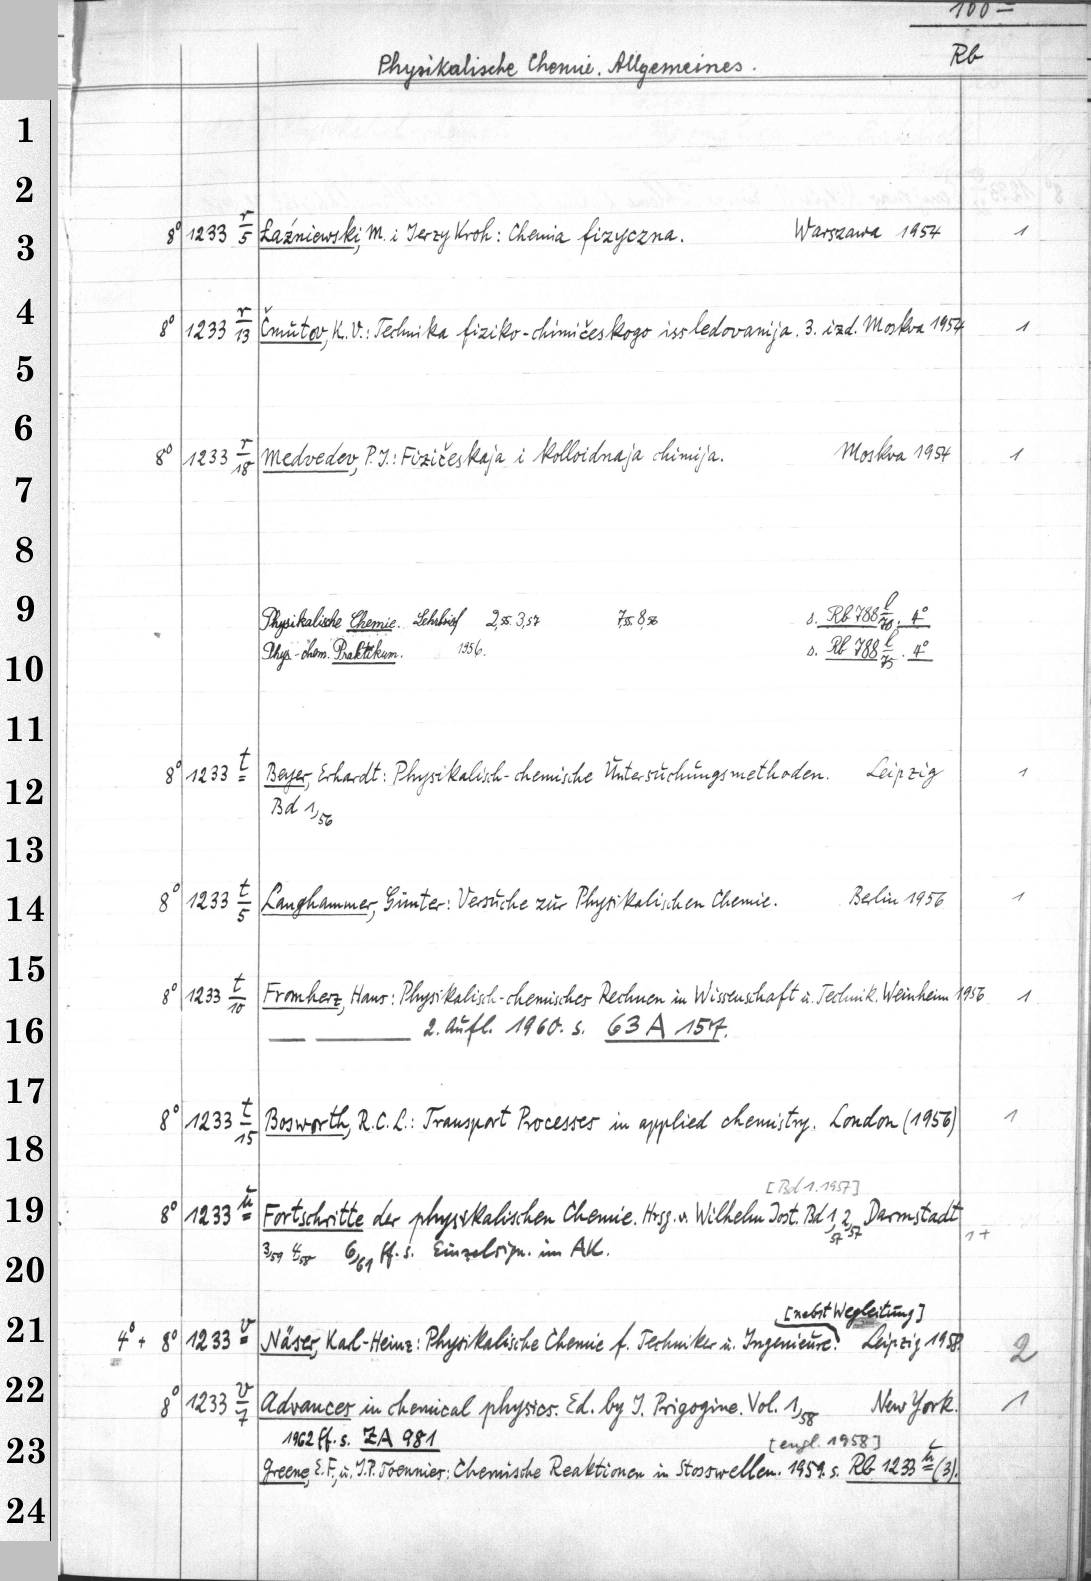 100 –
Physikalische Chemie. Allgemeines. Rb
1
2
3 8° 1233 r/5 Łaźniewski, M. i Jerzy Kroh: Chemia fizyczna. Warszawa 1954 1
4 8° 1233 r/13 Čmutov, K. V.: Technika fiziko-chimičeskogo issledovanija. 3. izd. Moskva 1954 1
5
6
7 8° 1233 r/18 Medvedev, P. I.: Fizičeskaja i kolloidnaja chimija. Moskva 1954 1
8
9 Physikalische Chemie. Lehrbrief 2,55. 3,57 7,55. 8,56 s. Rb 788 l/70. 4°
10 Phys.-chem. Praktikum. 1956. s. Rb 788 l/75. 4°
11
12 8° 1233 t/= Beyer, Erhardt: Physikalisch-chemische Untersuchungsmethoden. Leipzig 1
Bd 1,56
13
14 8° 1233 t/5 Langhammer, Günter: Versuche zur Physikalischen Chemie. Berlin 1956 1
15 8° 1233 t/10 Fromherz, Hans: Physikalisch-chemisches Rechnen in Wissenschaft u. Technik. Weinheim 1956 1
16 — —— 2. Aufl. 1960. s. 63 A 157.
17
18 8° 1233 t/15 Bosworth, R. C. L.: Transport Processes in applied chemistry. London (1956) 1
[Bd 1. 1957]
19 8° 1233 u/= Fortschritte der physikalischen Chemie. Hrsg. v. Wilhelm Jost. Bd 1,57 2,57 Darmstadt 1+
20 3/59 4/58 6/61 ff. s. Einzelsign. im AK.
[nebst Wegleitung]
21 4° + 8° 1233 v/= Näser, Karl-Heinz: Physikalische Chemie f. Techniker u. Ingenieure. Leipzig 1958. 2
22 8° 1233 v/7 Advances in chemical physics. Ed. by I. Prigogine. Vol. 1,58 New York. 1
1962 ff. s. ZA 981
[engl. 1958]
23 Greene, E. F., u. J. P. Toennies: Chemische Reaktionen in Stosswellen. 1959. s. Rb 1233 u/= (3).
24